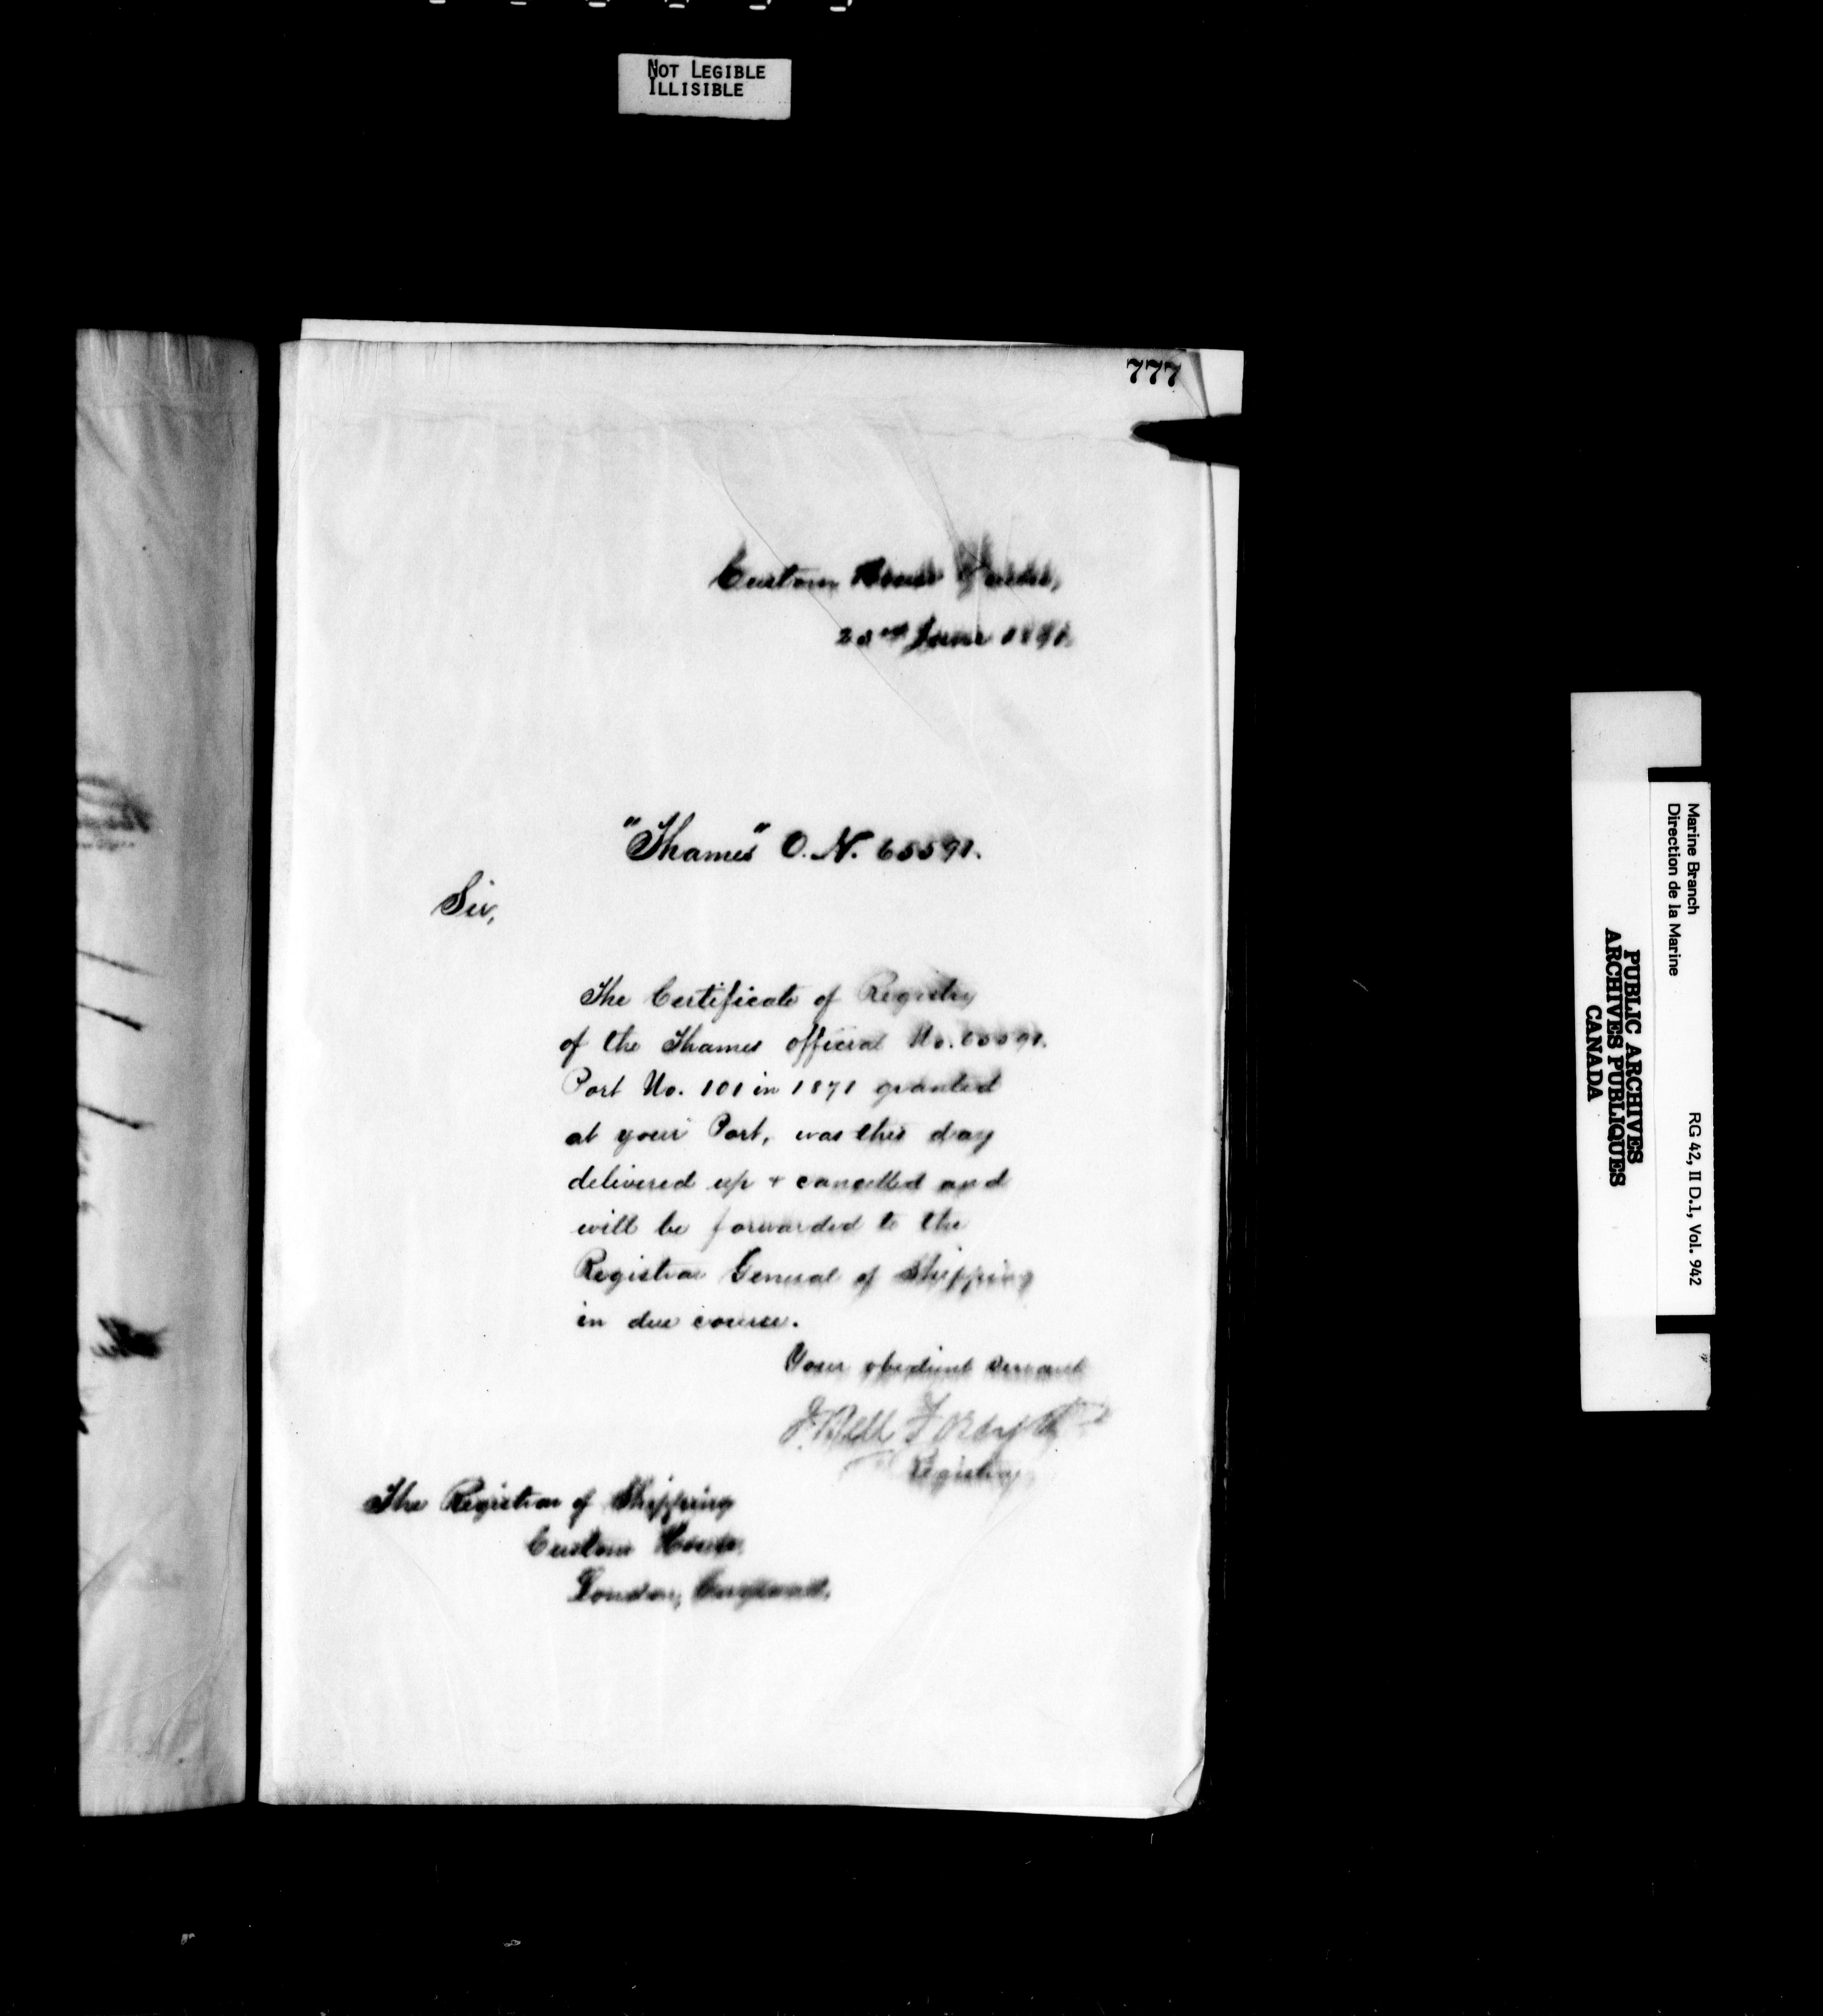 NOT LEGIBLE
ILLISIBLE
777
Custom House
June
"Thames" O. N. 65591.
Sir,
The Certificate of Registry
of the Thames official No. 65591.
Port No. 101 in 1871 granted
at your Port, was this day
delivered up + cancelled and
will be forwarded to the
Registrar General of Shipping
in due course.
Your obedient servant
J. Bell Forsyth
Registrar
The Registrar of Shipping
Custom House,
London, England.
Marine Branch
Direction de la Marine
RG 42, II D.1, Vol. 942
PUBLIC ARCHIVES
ARCHIVES PUBLIQUES
CANADA